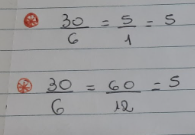 30/6 = 5/1 = 5
30/6 = 60/12 = 5